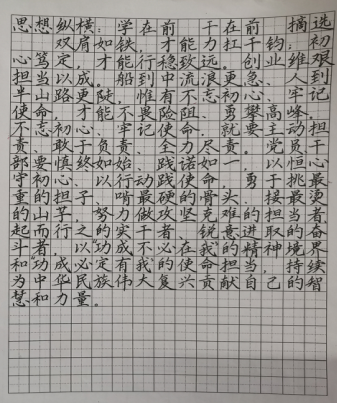 思想纵横：学在前 干在前 摘选
双肩如铁，才能力扛千钧；初
心笃定，才能行稳致远。创业维艰
担当以成。船到中流浪更急、人到
半山路更陡，惟有不忘初心、牢记
使命，才能不畏险阻、勇攀高峰。
不忘初心、牢记使命，就要主动担
责、敢于负责、全力尽责。党员干
部要慎终如始、践诺如一，以恒心
守初心、以行动践使命，勇于挑最
重的担子、啃最硬的骨头、接最烫
的山芋，努力做攻坚克难的担当者、
起而行之的实干者、锐意进取的奋
斗者，以“功成不必在我”的精神境界
和“功成必定有我”的使命担当，持续
为中华民族伟大复兴贡献自己的智
慧和力量。